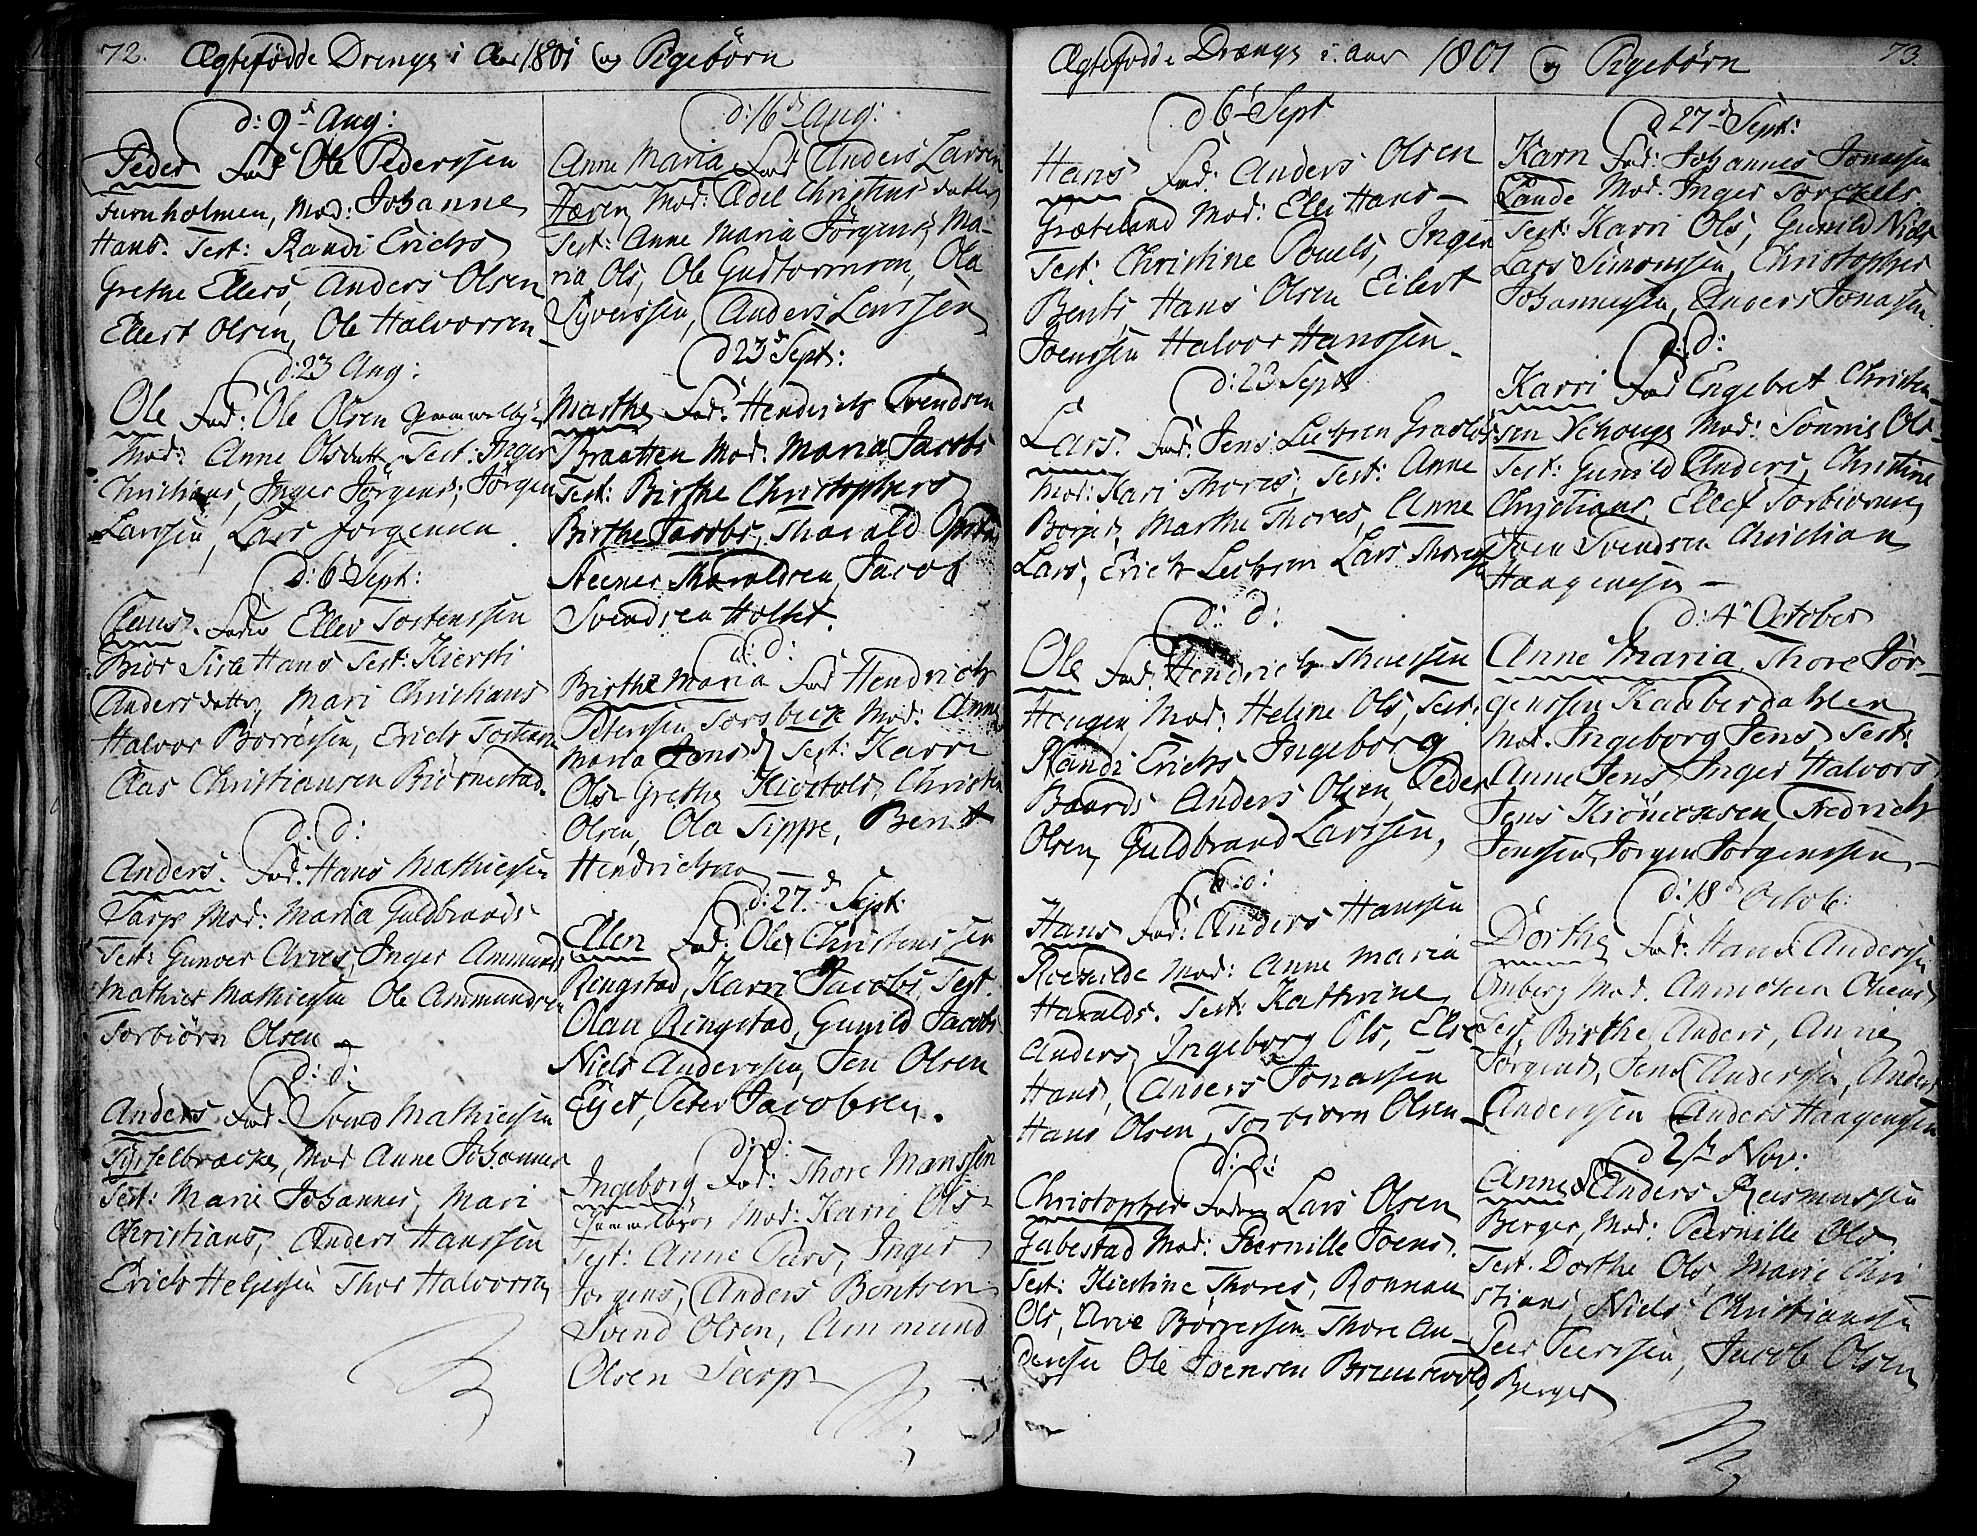 72. Ægtefødde Drenge i Aar 1801 og Pigebørn
d: 9d Aug:
Peder Fad: Ole Pederssen
Furuholmen, Mod: Johanne
Hans. Test: Randi Erichs
Grethe Ellers, Anders Olsen
Ellert Olsen, Ole Halvorsen
d: 23 Aug:
Ole Fad: Ole Olsen
Mod: Anne Olsdatt. Test: Inger
Christians, Inger Jørgens, Jørgen
Larssen, Lars Jørgensen.
d: 6 Sept:
Claus. Fader Ellev Tostenssen
Test: Kiersti
Andersdatter, Mari Christians
Halvor Børresen, Erich
Claus Christiansen Biørnestad.
d: d:
Anders. Fad: Hans Mathiessen
Tarp Mod: Maria Guldbrands
Test: Gunver Arves, Inger Ammunds
Mathies Mathiessen Ole Ammundsen
Torbiørn Olsen
d: d:
Anders Fad: Svend Mathiessen
Mod Anne Johannes
Test: Marie Johannes, Mari
Christians, Anders Hanssen
Erich Helgesen Thor Halvorsen
d: 16d Aug:
Anne Maria Fad Anders Larsen
Mod: Adel Christiansdatter
Test: Anne Maria Jørgens, Ma-
ria Ols, Ole Guttormsen, Ola
Syverssen, Anders Larssen
d 23d Sept:
Marthe Fad: Hendrich Svendsen
Braatten Mod: Maria Jacobs
Test: Birthe Christophers
Birthe Jacobs, Tharald
Steener Tharaldsen, Jacob
Svendsen Holset.
d: d:
Birthe Maria Fad Hendrich
Peterssen Torsbeck Mod: Anne
Maria Jens d. Test: Karri
Ols Grethe Christen
Olsen, Ola Sippe, Bent
Hendrichsen
d: 27d Sept:
Ellen Fad: Ole Christenssen
Ringstad, Karri Jacobs Test.
Olau Ringstad, Gunild Jacobs
Niels Anderssen, Jen Olsen
Eget, Peter Jacobsen.
d: d:
Ingeborg Fad: Thore Manssen
Mod: Karri Ols
Test: Anne Pærs, Inger
Jørgens, Anders Bentsen
Svend Olsen, Ammund
Olsen Tarp
Ægtefødde Drenge i Aar 1801 og Pigebørn 73.
d 6 Sept
Hans Fad: Anders Olsen
Græteland Mod: Elle Hans
Test: Christine Pouels, Inger
Bents Hans Olsen Eilert
Joenssen Halvor Hanssen.
d: 23 Sept
Lars. Fad: Jens
Mod: Kari Thores, Test: Anne
Marthe Thores, Anne
Lars, Erich Lars
d: d:
Ole Fad: Hendrich
Haugen, Mod: Heline Ols, Test:
Randi Erichs Ingeborg
Baards Anders Olsen, Peder
Olsen, Guldbrand Larssen,
d: d:
Hans Fad: Anders Hanssen
Mod: Anne Maria
Haralds. Test: Kathrine
Anders, Ingeborg Ols, Else
Hans, Anders Jonassen
Hans Olsen, Torbiørn Olsen
d: d:
Christopher Fader Lars Olsen
Gabestad Mod: Pernille Joens.
Test: Kierstine Thores, Ronnau
Ols, Arve Børressen Thore An-
derssen Ole Joensen
d 27d Sept:
Karn Fad: Johannes Jonassen
Lande Mod. Inger Torckels.
Test: Karri Ols, Gunild Niels
Lars Simonssen, Christopher
Johannessen, Anders Jonassen.
d: d:
Karri Fad Engebret Christen-
sen Schouge Mod: Tonnis Ols-
Test: Gunild Anders, Christine
Christians, Ellef Torbiørnsen
Joen Svendsen Christian
Haagensen
d: 4d October
Anne Maria Thore Jør-
genssen Kauberdahlen
Mod. Ingeborg Jens, Test:
Anne Jens, Inger Halvors
Jens Fredrich
Jenssen, Jørgen Jørgenssen
d: 18d Octob:
Dorthe Fad: Hans Anderssen
Mod.
Test. Birthe Anders, Anne
Jørgens, Jens Anderssen, Anders
Anderssen Anders Haagenssen
d 2 Nov:
Anne Anders Rasmussen
Berger, Mod: Pernille Ols.
Test. Dorthe Ols, Marie Chri-
stians, Niels Christianssen
Peer Peerssen, Jacob Olsen
Berger